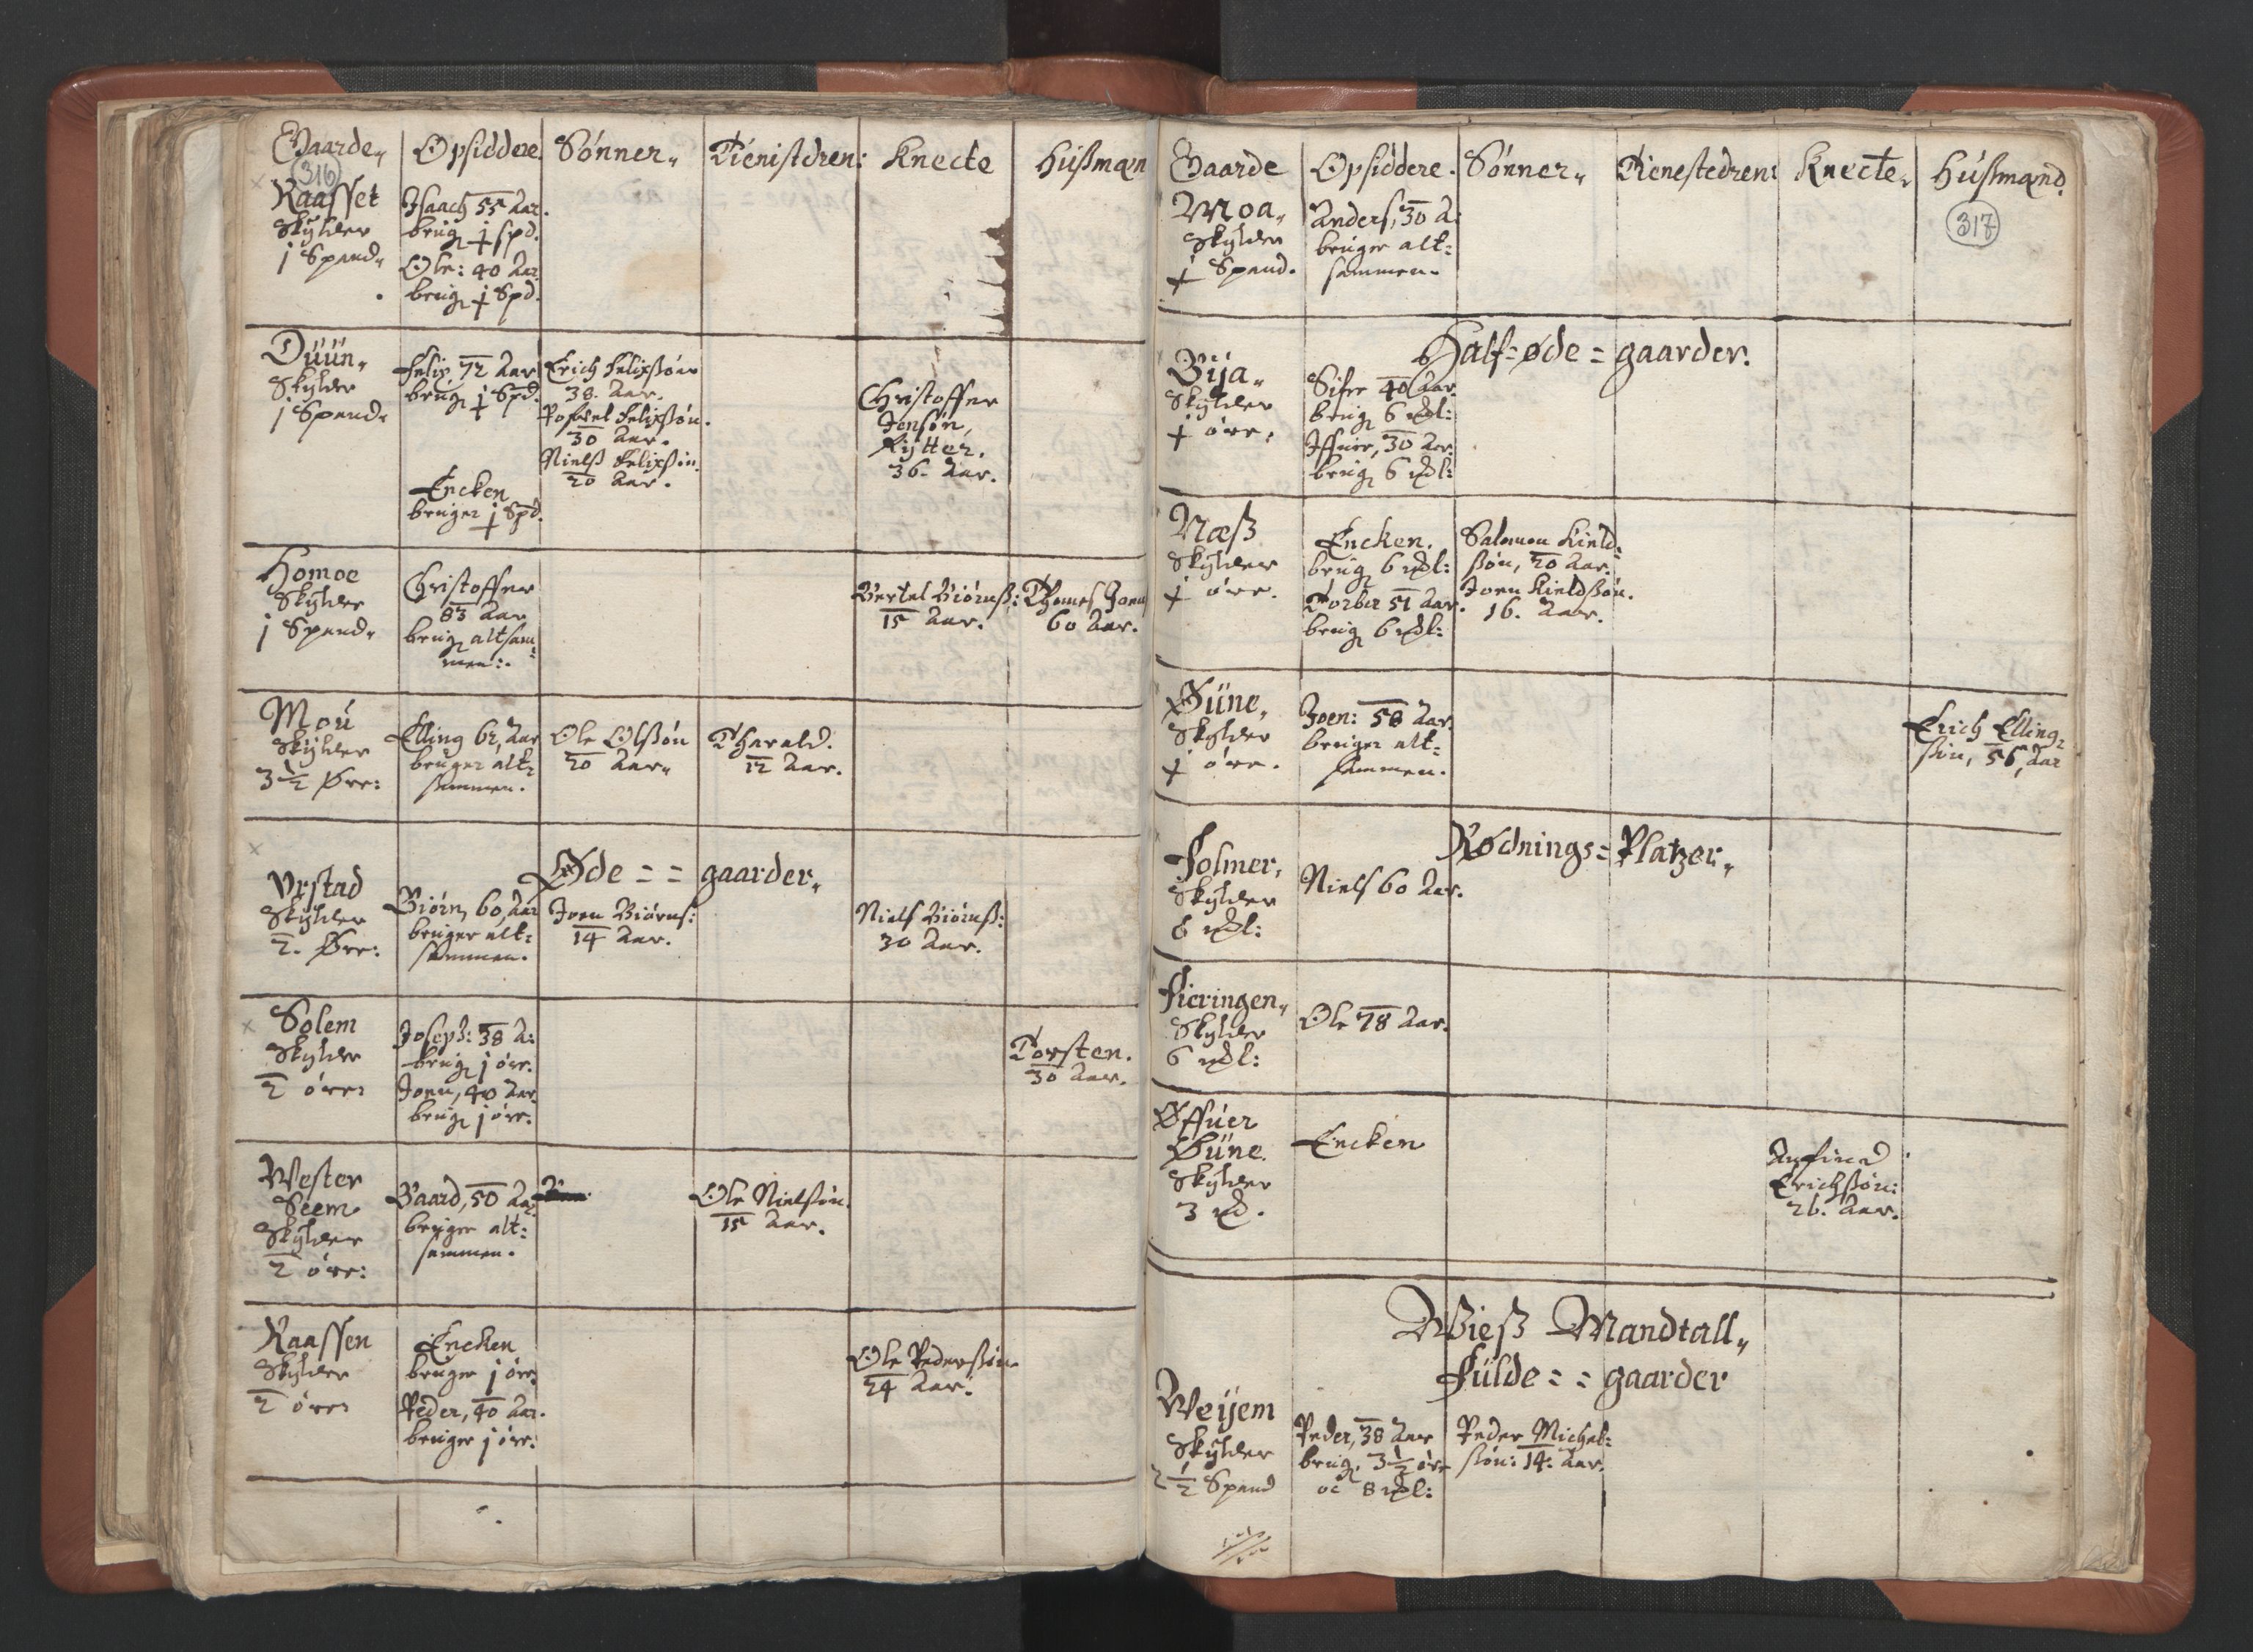 Gaarde„ Opsiddere. Sønner„ Tienistdren: Knecte Hüßmæn
316
Raasset
Skylder
j Spand„
Isaach 55 Aar.
brug. ɉ spd.
Ole: 40 Aar
brug. ɉ Spd.
Düün„
Skylder
j Spand„
Felix, 72 Aar
brug. ɉ Spd.
Encken
bruger ɉ Spd.
Erich Felixßøn
38. Aar.
Pofuel Felixßøn.
30 Aar.
Nielß Felixßøn.
20 Aar.
Christoffer
Jensøn,
Rytter.
36. Aar.
Homoe
Skylder
j Spand„
Christoffer
83 Aar
brug. altsam=
men:.
Bertel Biørnß:
15 Aar.
Thomes Joen
60 Aar.
Moú
Skylder
3½ Øre:
Elling 62, Aar
bruger alt=
sammen.
Ole Olßøn
20 Aar„
Tharald.
12 Aar.
Øde = = gaarder„
Vrstad
Skylder
2. Øre:
Biørn, 60, Aar
bruger alt=
sammen.
Joen Biørns:
14 Aar.
Niels Biørnß:
30 Aar.
Solem
Skylder
2 øre:
Joseph: 38 A:
brug. j øre.
Joen, 40 Aar.
brug. j øre.
Torsten.
30 Aar.
Wester
Seem
Skylder
2 øre:
Baard, 50 Aar.
bruger alt=
sammen.
Ole Nielsøn.
15 Aar.
Raassen
Skylder
2 øre:
Encken
bruger j øre.
Peder, 40 Aar.
bruger j øre:
Ole Pederßøn
24 Aar.
Gaarde Opsiddere. Sønner„ Tienestedren: Knecte„ Hüßmænd.
317
Moa„
Skylder
ɉ Spand.
Anders, 30 A:
bruger alt=
sammen.
Half=øde=gaarder.
Bija„
Skylder
ɉ øre.
Sifer 40 Aar.
brug. 6 mdl:
Iffuer, 30 Aar.
brug. 6 mdl:
Næß
Skylder
ɉ øre.
Encken.
brug. 6 mdl:
Torber 51 Aar.
brug. 6 mdl:
Salmon Kield=
ßøn, 20 Aar.
Joen Kieldßøn.
16. Aar.
Øüne,
Skylder
ɉ øre.
Joen: 58 Aar.
bruger alt=
sammen.
Erich Elling=
søn, 56, Aar
Rødnings=Platzer„
Folmer,
Skylder
6 mdl:
Niels 60 Aar.
Fieringen„
Skylder
6 mdl:
Ole 78 Aar.
Øffuer
Øüne.
Skylder
3 md.
Encken
Anfind
Erichßøn:
26. Aar.
Wieß Mandtall„
Fülde = = gaarder
Weijem
Skylder
2½ Spand
Peder, 38 Aar
brug. 3½ øre
oc 8 mdl:
Peder Michel=
ßøn: 14: Aar.